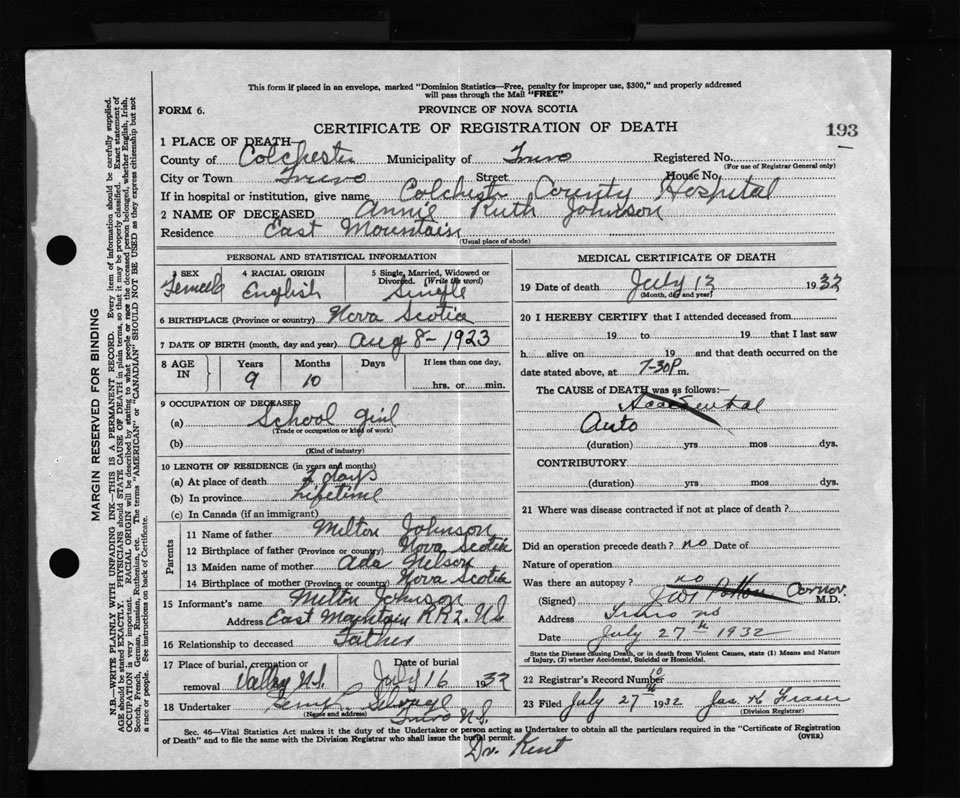 This form if placed in an envelope, marked "Dominion Statistics—Free, penalty for improper use, $300," and properly addressed
will pass through the Mail "FREE"
FORM 6.
PROVINCE OF NOVA SCOTIA
CERTIFICATE OF REGISTRATION OF DEATH
193
1 PLACE OF DEATH—
County of Colchester Municipality of Truro Registered No.
(For use of Registrar General only)
City or Town Truro Street House No.
If in hospital or institution, give name Colchester County Hospital
2 NAME OF DECEASED Annie Ruth Johnson
Residence East Mountain
(Usual place of abode)
PERSONAL AND STATISTICAL INFORMATION
3 SEX Female
4 RACIAL ORIGIN English
5 Single, Married, Widowed or Divorced. (Write the word) Single
6 BIRTHPLACE (Province or country) Nova Scotia
7 DATE OF BIRTH (month, day and year) Aug 8 - 1923
8 AGE IN Years 9 Months 10 Days If less than one day, hrs. or min.
9 OCCUPATION OF DECEASED
(a) School girl
(Trade or occupation or kind of work)
(b)
(Kind of industry)
10 LENGTH OF RESIDENCE (in years and months)
(a) At place of death days
(b) In province Lifetime
(c) In Canada (if an immigrant)
Parents
11 Name of father Milton Johnson
12 Birthplace of father (Province or country) Nova Scotia
13 Maiden name of mother Ada Nelson
14 Birthplace of mother (Province or country) Nova Scotia
15 Informant's name Milton Johnson
Address East Mountain RR2. N.S
16 Relationship to deceased Father
17 Place of burial, cremation or removal Valley N.S. Date of burial July 16 1932
18 Undertaker
(Name and address) Truro N.S.
MEDICAL CERTIFICATE OF DEATH
19 Date of death July 13 1932
(Month, day and year)
20 I HEREBY CERTIFY that I attended deceased from
19 to 19 that I last saw
h alive on 19 and that death occurred on the
date stated above, at 7-30 P m.
The CAUSE of DEATH was as follows:—
Accidental
Auto
(duration) yrs mos dys.
CONTRIBUTORY
(duration) yrs mos dys.
21 Where was disease contracted if not at place of death?
Did an operation precede death? no Date of
Nature of operation
Was there an autopsy? no
(Signed) Coroner M.D.
Address Truro NS
Date July 27th 1932
State the Disease causing Death, or in death from Violent Causes, state (1) Means and Nature
of Injury, (2) whether Accidental, Suicidal or Homicidal.
22 Registrar's Record Number 10
23 Filed July 27th 1932 Jas. K Fraser
(Division Registrar)
Sec. 46—Vital Statistics Act makes it the duty of the Undertaker or person acting as Undertaker to obtain all the particulars required in the "Certificate of Registration
of Death" and to file the same with the Division Registrar who shall issue the burial permit. (OVER)
Dr. Kent
MARGIN RESERVED FOR BINDING
N.B.—WRITE PLAINLY WITH UNFADING INK—THIS IS A PERMANENT RECORD. Every item of information should be carefully supplied.
AGE should be stated EXACTLY. PHYSICIANS should STATE CAUSE OF DEATH in plain terms, so that it may be properly classified. Exact statement of
OCCUPATION is very important. RACIAL ORIGIN will be described by stating to what people or race the deceased person belonged, whether English, Irish,
Scotch, French, German, Russian, Ruthenian, etc. The terms "AMERICAN" or "CANADIAN" SHOULD NOT BE USED as they express citizenship but not
a race or people. See instructions on back of Certificate.